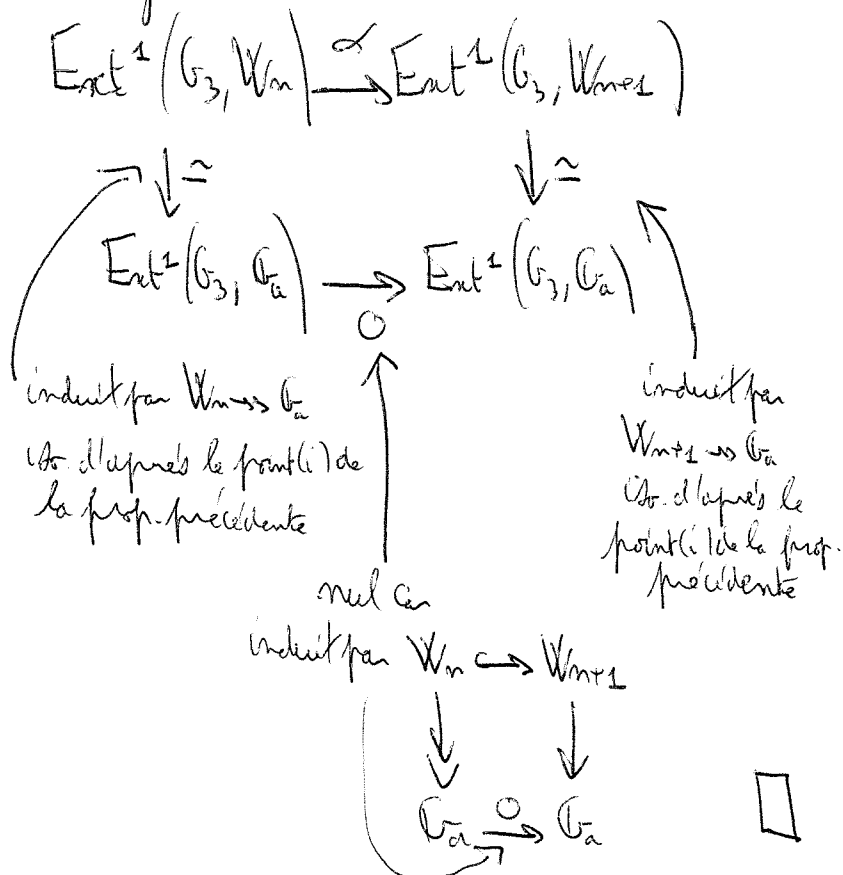 Ext¹(G₃, Wₙ) →α Ext¹(G₃, Wₙ₊₁)
↓≃ ↓≃
Ext¹(G₃, Gₐ) →0 Ext¹(G₃, Gₐ)
induit par Wₙ ↠ Gₐ
iso. d'après le point (i) de
la prop. précédente
induit par
Wₙ₊₁ ↠ Gₐ
iso. d'après le
point (i) de la prop.
précédente
nul car
induit par Wₙ ↪ Wₙ₊₁
Gₐ →0 Gₐ
□